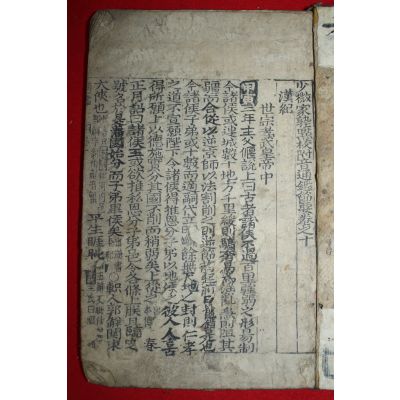 少微家塾點校附音通鑑節要卷之十
漢紀
世宗孝武皇帝中
甲寅二年主父偃說上曰古者諸侯不過百里彊弱之形易制
今諸侯或連城數十地方千里緩則驕奢易爲淫亂急則阻其
彊而合從以逆京師以法割削之則逆節萌起前日鼂錯是也
今諸侯子弟或十數而適嗣代立餘地之封則仁孝
之道不宣願陛下令諸侯得推恩分子弟以地侯之彼人人喜
得所願上以德施實分其國不削而稍弱矣上從之春
正月詔曰諸侯王或欲推私恩分子弟邑者令各條上朕且臨定其
號名於是藩國始分而子弟畢侯矣○軹人郭解關東
大俠也平生睚眦